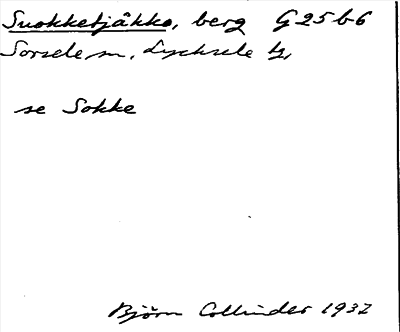 Suokketjåkko, berg G25b6
Sorsele sn, Lycksele tg,
se Sokke
Björn Collinder 1932